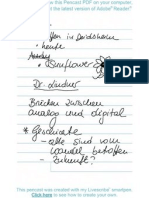 this Pencast PDF on your computer.
latest version of Adobe® Reader®
heute
Sunflower
Dr. Lindner
Brücken zwischen
analog und digital
* Geschichte
- alle sind vom
Wandel betroffen
- Zukunft?
This pencast was created with my Livescribe™ smartpen.
Click here to see how to create your own.